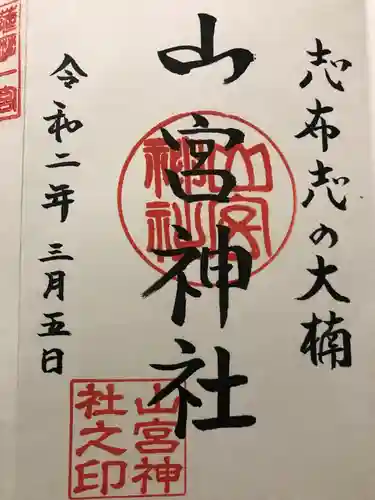 志布志の大楠
山宮神社
山宮
神社
山宮神
社之印
令和二年 三月五日
一宮